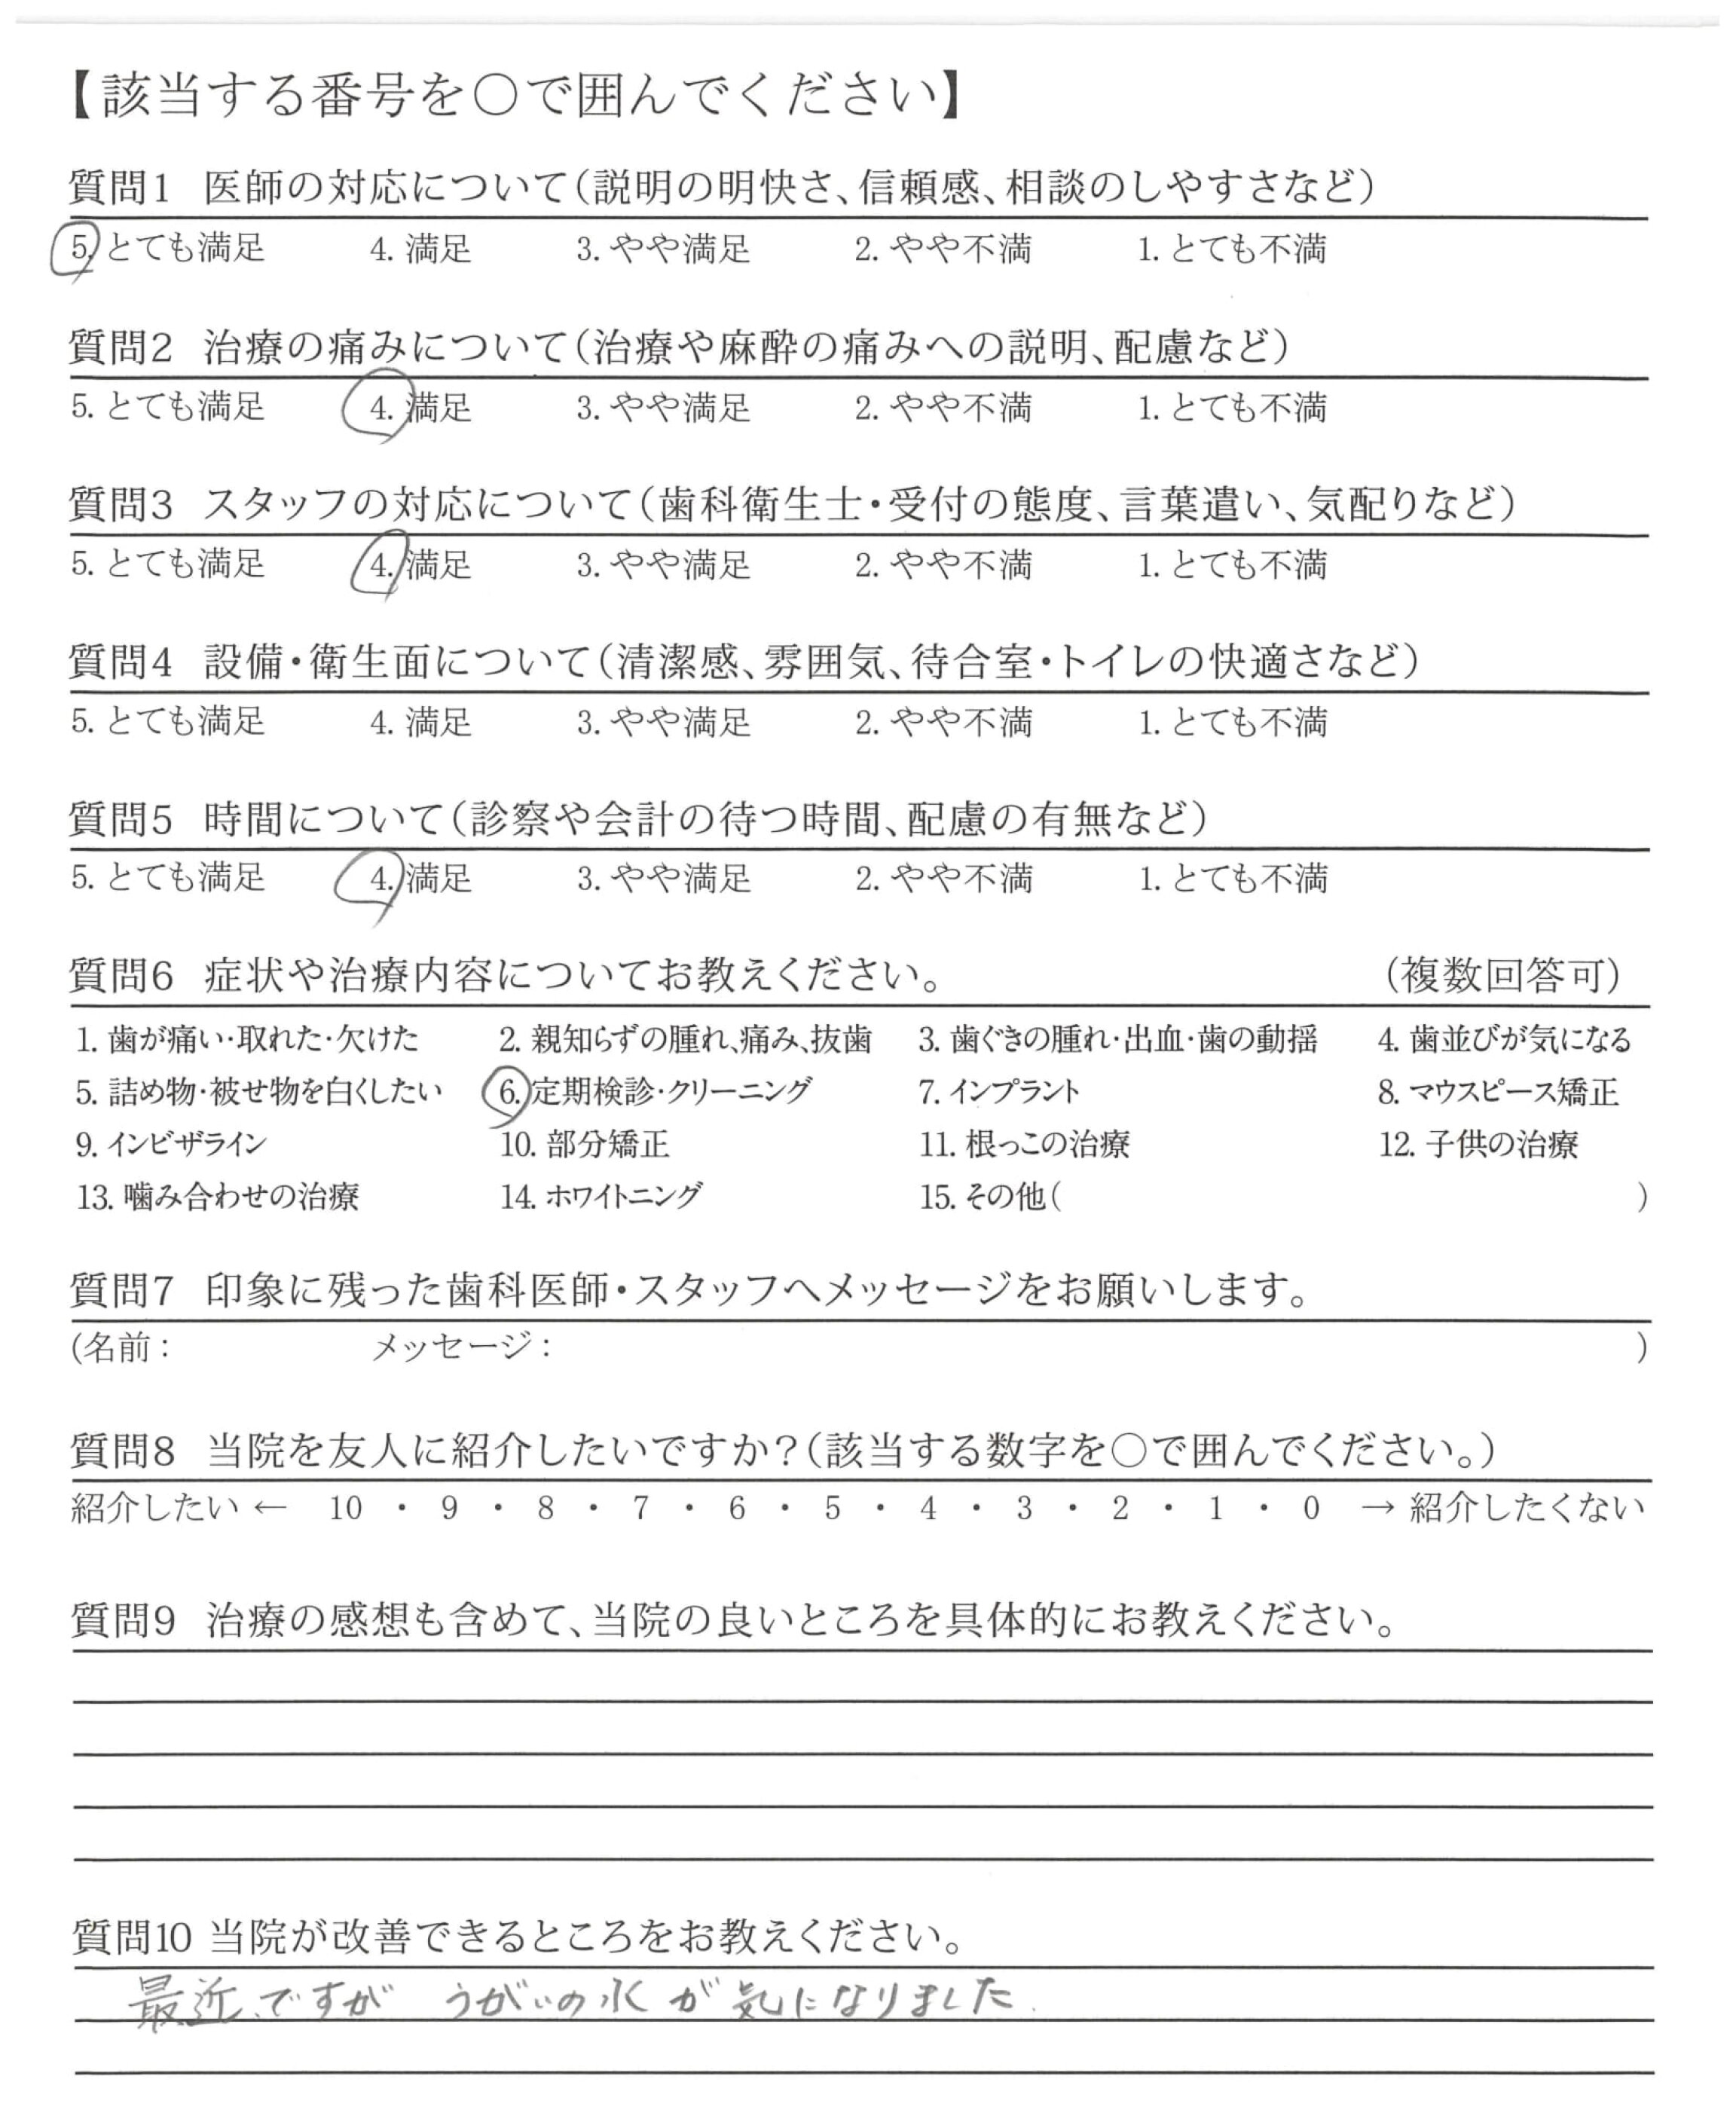 【該当する番号を○で囲んでください】
質問1 医師の対応について(説明の明快さ、信頼感、相談のしやすさなど)
5. とても満足 4. 満足 3. やや満足 2. やや不満 1. とても不満
質問2 治療の痛みについて(治療や麻酔の痛みへの説明、配慮など)
5. とても満足 4. 満足 3. やや満足 2. やや不満 1. とても不満
質問3 スタッフの対応について(歯科衛生士・受付の態度、言葉遣い、気配りなど)
5. とても満足 4. 満足 3. やや満足 2. やや不満 1. とても不満
質問4 設備・衛生面について(清潔感、雰囲気、待合室・トイレの快適さなど)
5. とても満足 4. 満足 3. やや満足 2. やや不満 1. とても不満
質問5 時間について(診察や会計の待つ時間、配慮の有無など)
5. とても満足 4. 満足 3. やや満足 2. やや不満 1. とても不満
質問6 症状や治療内容についてお教えください。 (複数回答可)
1. 歯が痛い・取れた・欠けた 2. 親知らずの腫れ、痛み、抜歯 3. 歯ぐきの腫れ・出血・歯の動揺 4. 歯並びが気になる
5. 詰め物・被せ物を白くしたい 6. 定期検診・クリーニング 7. インプラント 8. マウスピース矯正
9. インビザライン 10. 部分矯正 11. 根っこの治療 12. 子供の治療
13. 噛み合わせの治療 14. ホワイトニング 15. その他( )
質問7 印象に残った歯科医師・スタッフへメッセージをお願いします。
(名前: メッセージ: )
質問8 当院を友人に紹介したいですか?(該当する数字を○で囲んでください。)
紹介したい ← 10 ・ 9 ・ 8 ・ 7 ・ 6 ・ 5 ・ 4 ・ 3 ・ 2 ・ 1 ・ 0 → 紹介したくない
質問9 治療の感想も含めて、当院の良いところを具体的にお教えください。
質問10 当院が改善できるところをお教えください。
最近、ですが うがいの水が気になりました.